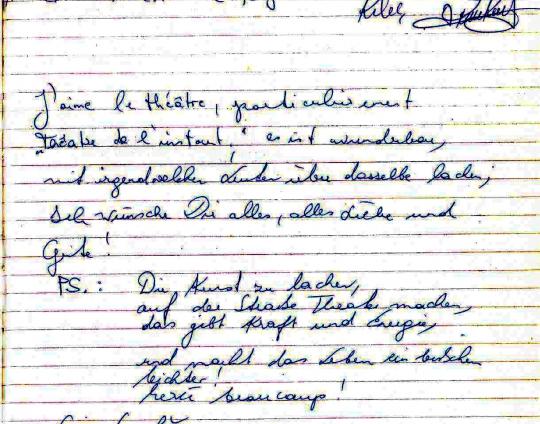 J'aime le théâtre, particulièrement
"Théatre de l'instant," es ist wunderbar,
mit irgendwelchen Leuten über dasselbe lachen;
Ich wünsche Dir alles, alles Liebe und
Gute!
P.S.: Die Kunst zu lachen,
auf der Straße Theater machen,
das gibt Kraft und Energie,
und macht das Leben ein bischen
leichter!
Merci beaucoup!